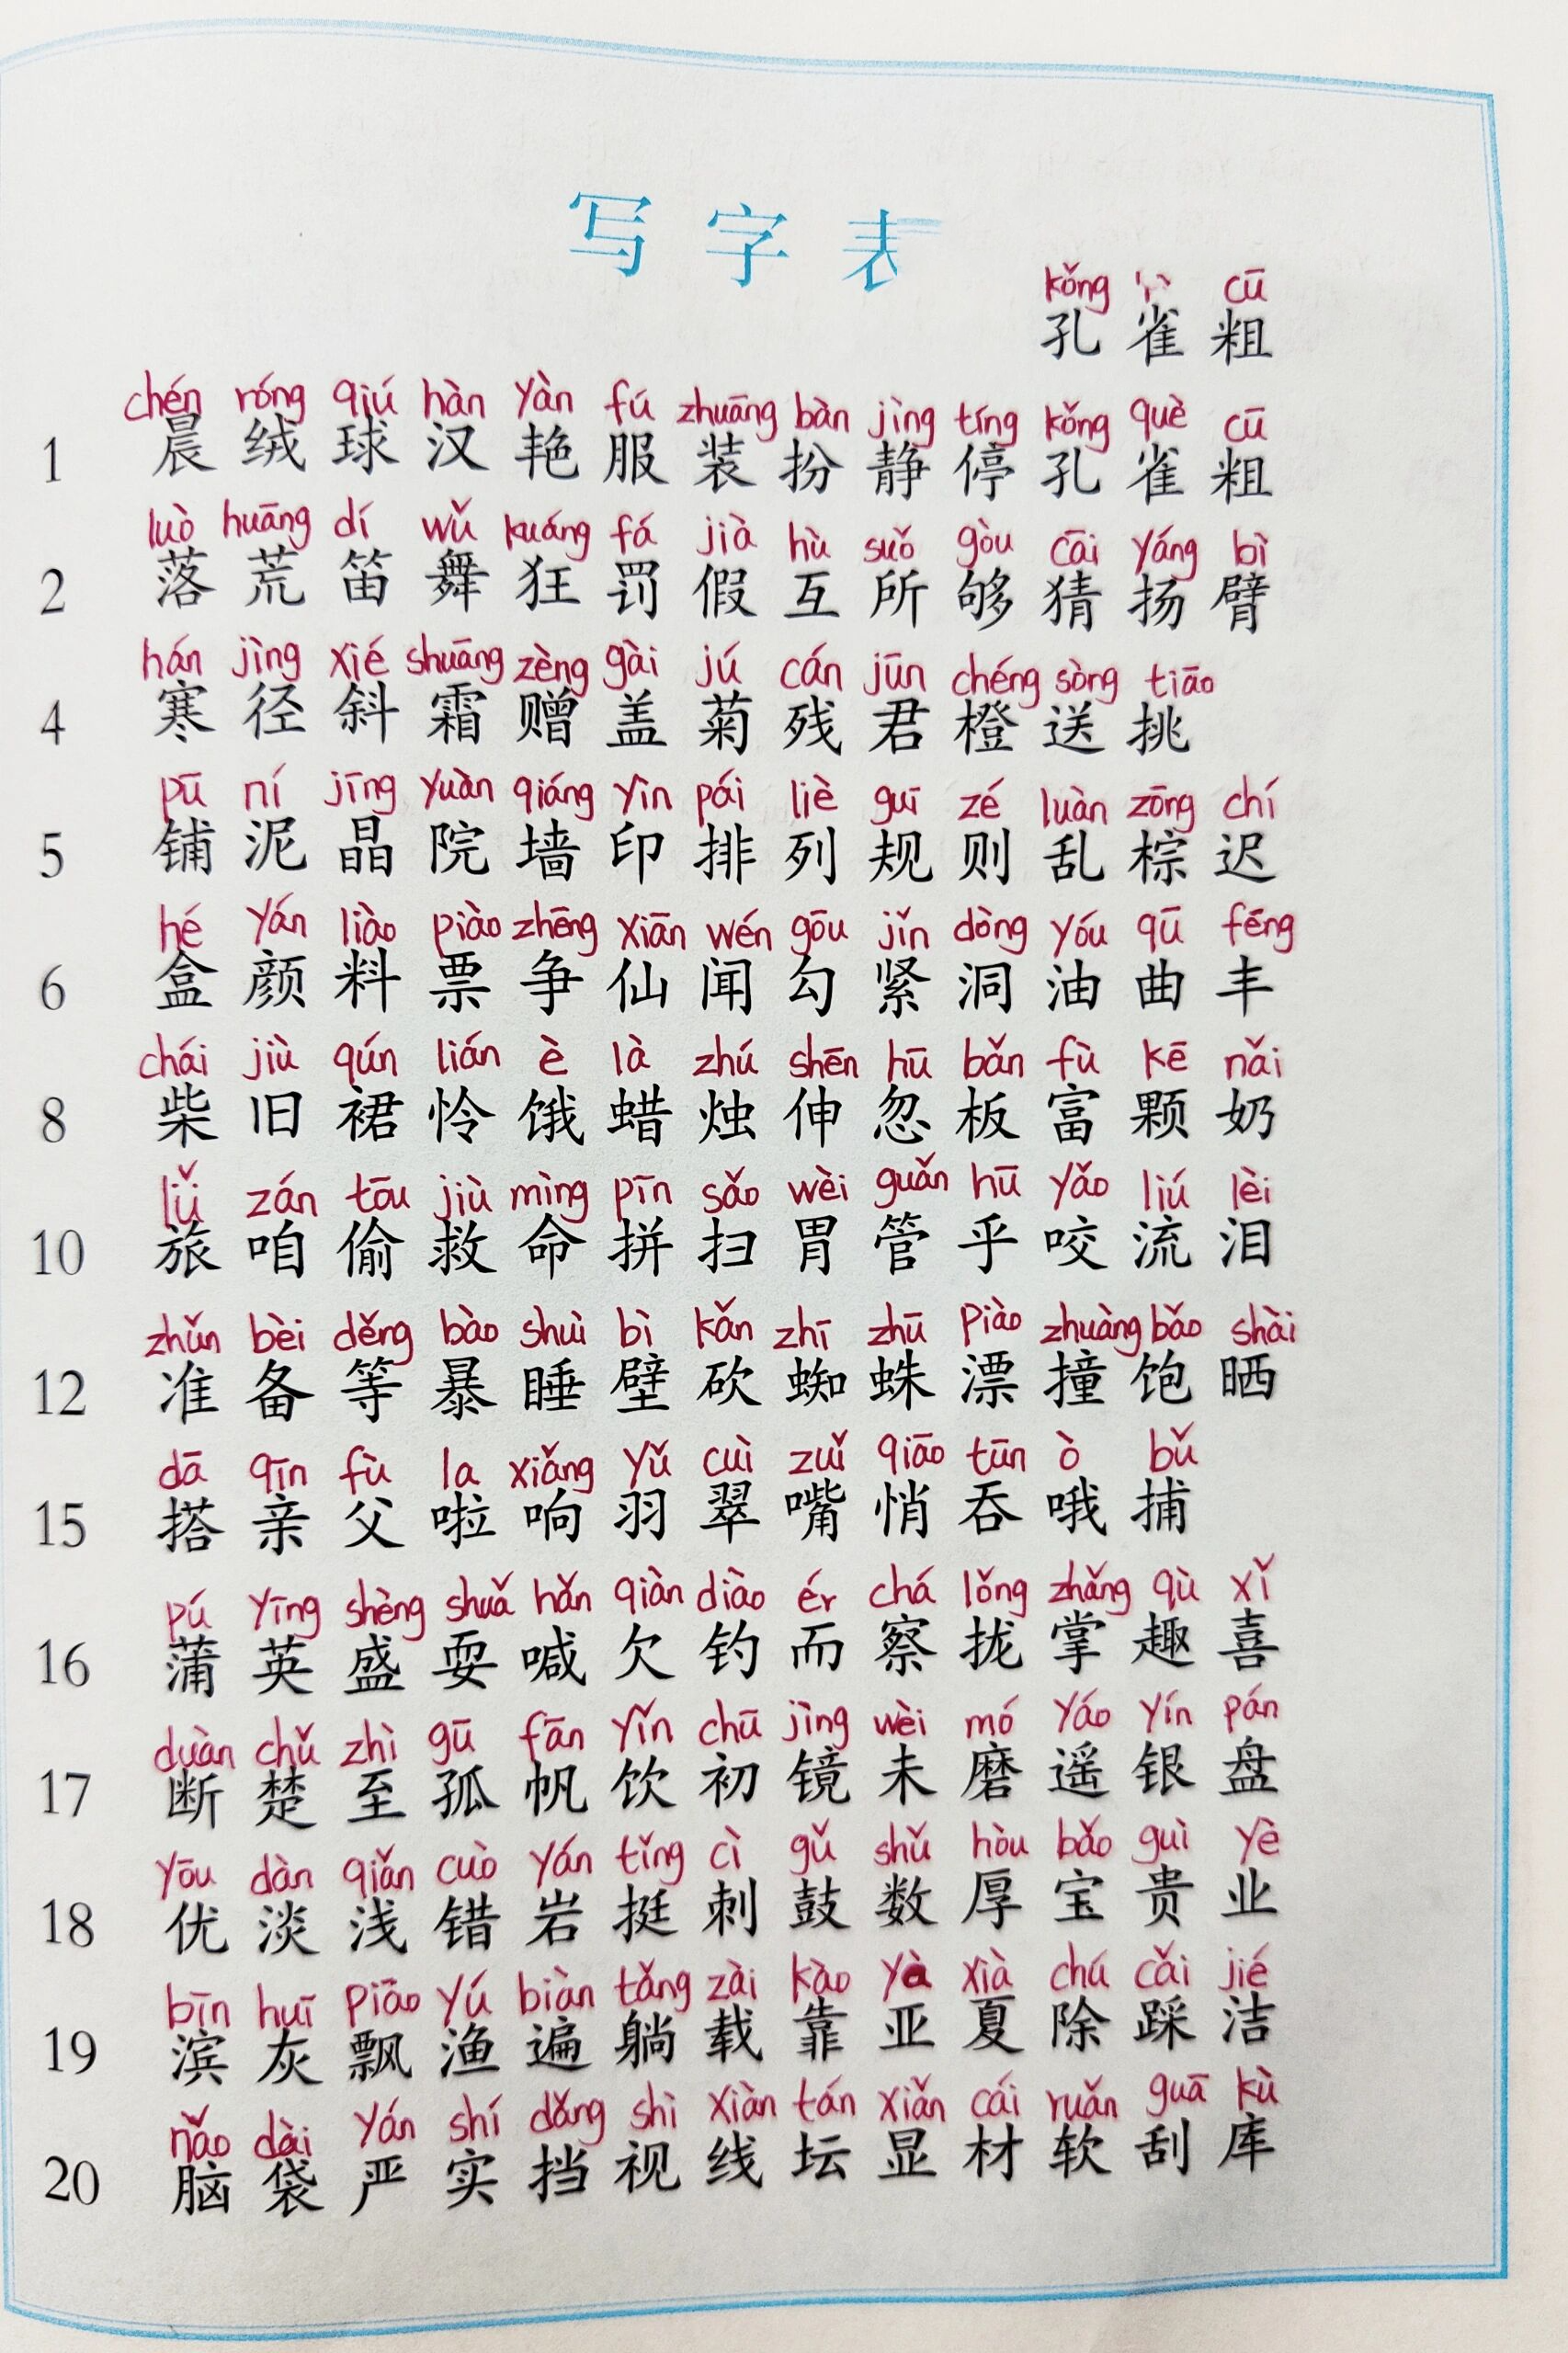 写字表
kǒng cū
孔 雀 粗
chén róng qiú hàn yàn fú zhuāng bàn jìng tíng kǒng què cū
1 晨 绒 球 汉 艳 服 装 扮 静 停 孔 雀 粗
luò huāng dí wǔ kuáng fá jià hù suǒ gòu cāi yáng bì
2 落 荒 笛 舞 狂 罚 假 互 所 够 猜 扬 臂
hán jìng xié shuāng zèng gài jú cán jūn chéng sòng tiāo
4 寒 径 斜 霜 赠 盖 菊 残 君 橙 送 挑
pū ní jīng yuàn qiáng yìn pái liè guī zé luàn zōng chí
5 铺 泥 晶 院 墙 印 排 列 规 则 乱 棕 迟
hé yán liào piào zhēng xiān wén gōu jǐn dòng yóu qū fēng
6 盒 颜 料 票 争 仙 闻 勾 紧 洞 油 曲 丰
chái jiù qún lián è là zhú shēn hū bǎn fù kē nǎi
8 柴 旧 裙 怜 饿 蜡 烛 伸 忽 板 富 颗 奶
lǚ zán tōu jiù mìng pīn sǎo wèi guǎn hū yǎo liú lèi
10 旅 咱 偷 救 命 拼 扫 胃 管 乎 咬 流 泪
zhǔn bèi děng bào shuì bì kǎn zhī zhū piào zhuàng bǎo shài
12 准 备 等 暴 睡 壁 砍 蜘 蛛 漂 撞 饱 晒
dā qīn fù la xiǎng yǔ cuì zuǐ qiāo tūn ò bǔ
15 搭 亲 父 啦 响 羽 翠 嘴 悄 吞 哦 捕
pú yīng shèng shuǎ hǎn qiàn diào ér chá lǒng zhǎng qù xǐ
16 蒲 英 盛 耍 喊 欠 钓 而 察 拢 掌 趣 喜
duàn chǔ zhì gū fān yǐn chū jìng wèi mó yáo yín pán
17 断 楚 至 孤 帆 饮 初 镜 未 磨 遥 银 盘
yōu dàn qiǎn cuò yán tǐng cì gǔ shǔ hòu bǎo guì yè
18 优 淡 浅 错 岩 挺 刺 鼓 数 厚 宝 贵 业
bīn huī piāo yú biàn tǎng zài kào yà xià chú cǎi jié
19 滨 灰 飘 渔 遍 躺 载 靠 亚 夏 除 踩 洁
nǎo dài yán shí dǎng shì xiàn tán xiǎn cái ruǎn guā kù
20 脑 袋 严 实 挡 视 线 坛 显 材 软 刮 库